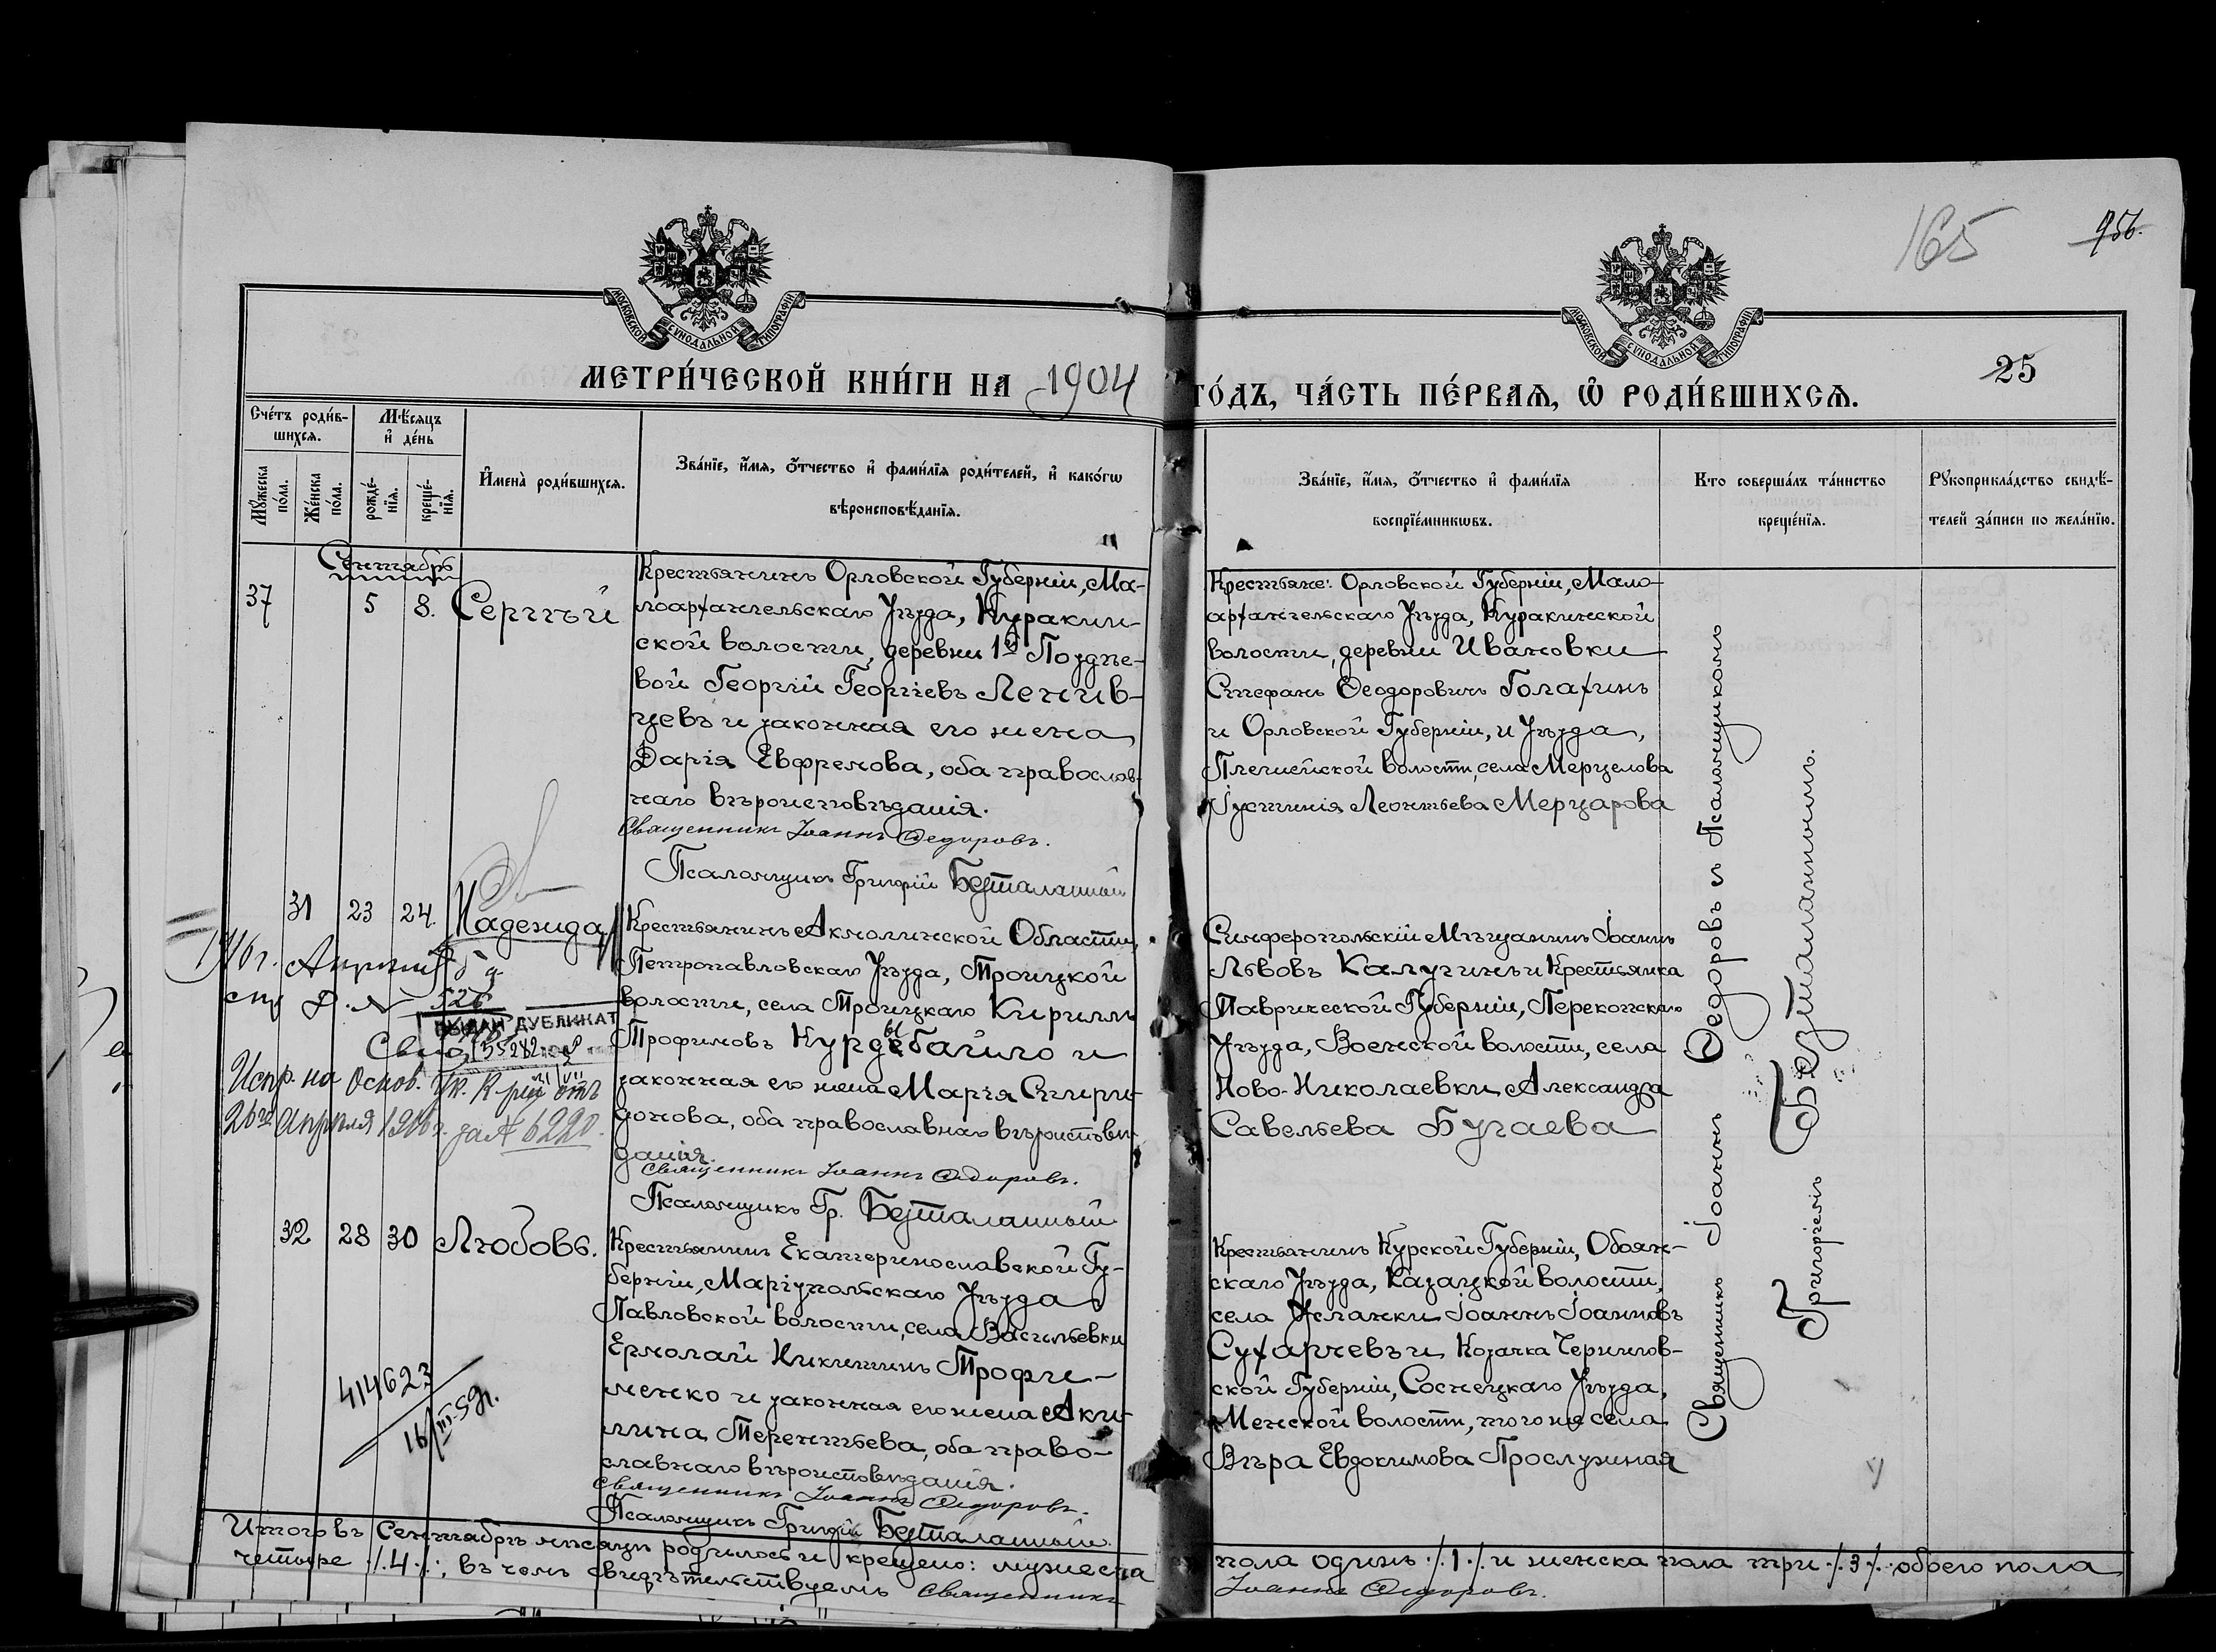 165
956.
МОСКОВСКОЙ СУНОДАЛЬНОЙ ТИПОГРАФІИ
МОСКОВСКОЙ СУНОДАЛЬНОЙ ТИПОГРАФІИ
25
МЕТРИ́ЧЕСКОЙ КНИ́ГИ НА 1904 ГО́ДЪ, ЧА́СТЬ ПЕ́РВАЯ, Ѡ РОДИ́ВШИХСЯ.
Сче́тъ роди́в-
шихся.
Мѣ́сяцъ
и҆ де́нь
Мꙋ́жеска
по́ла.
Же́нска
по́ла.
рожде́-
нїя.
креще́-
нїя.
И҆мена̀ роди́вшихся.
Зва́нїе, и҆́мя, о҆́тчество и҆ фами́лїя роди́телей, и҆ како́гѡ
вѣроисповѣ́данїя.
Зва́нїе, и҆́мя, о҆́тчество и҆ фами́лїя
воспрїе́мникѡвъ.
Кто соверша́лъ та́инство
креще́нїя.
Рꙋкоприкла́дство свидѣ́-
телей за́писи по жела́нїю.
Сентябрь
37
5
8.
Сергѣй
Крестьянинъ Орловской Губерніи, Ма-
лоархангельскаго Уѣзда, Куракин-
ской волости, деревни 1й Поздне-
вой Георгій Георгіевъ Ленив-
цевъ и законная его жена
Дарія Евфремова, оба православ-
наго вѣроисповѣданія.
Священникъ Іоаннъ Ѳедоровъ.
Псаломщикъ Григорій Безталанный
Крестьяне: Орловской Губерніи, Мало-
архангельскаго Уѣзда, Куракинской
волости, деревни Ивановки
Стефанъ Ѳеодоровичъ Голахинъ
и Орловской Губерніи, и Уѣзда,
Плещеевской волости, села Мерцелова
Іустинія Леонтьева Мерцарова
31
23
24.
Надежда
Крестьянинъ Акмолинской Области,
Петропавловскаго Уѣзда, Троицкой
волости, села Троицкаго Кириллъ
Трофимовъ Курдыбайло и
законная его жена Марія Спири-
донова, оба православнаго вѣроисповѣ-
данія.
Священникъ Іоаннъ Ѳедоровъ.
Псаломщикъ Гр. Безталанный
Симферопольскій Мѣщанинъ Іоаннъ
Львовъ Калугинъ и Крестьянка
Таврической Губерніи, Перекопскаго
Уѣзда, Военской волости, села
Ново-Николаевки Александра
Савельева Бугаева
526
ВЫДАН ДУБЛИКАТ
Испр. на основ. Ук. от
26го Апрѣля 1906 г. за № 6220.
32
28
30
Любовь.
Крестьянинъ Екатеринославской Гу-
берніи, Маріупольскаго Уѣзда
Павловской волости, села Васильевки
Ермолай Никитинъ Трофи-
менко и законная его жена Аки-
лина Терентьева, оба право-
славнаго вѣроисповѣданія.
Священникъ Іоаннъ Ѳедоровъ.
Псаломщикъ Григорій Безталанный.
Крестьянинъ Курской Губерніи, Обоян-
скаго Уѣзда, Казацкой волости,
села Усланки Іоаннъ Іоанновъ
Сухарчевъ и Козачка Чернигов-
ской Губерніи, Сосницкаго Уѣзда,
Менской волости, того же села
Вѣра Евдокимова
414623
16/III-59г.
Священникъ Іоаннъ Ѳедоровъ съ Псаломщикомъ
Григоріемъ Безталаннымъ.
Итого въ Сентябрѣ мѣсяцѣ родилось и крещено: мужеска пола одинъ ./.1./. и женска пола три ./.3./. обоего пола
четыре ./.4./.; въ чемъ свидѣтельствуемъ Священникъ Іоаннъ Ѳедоровъ.